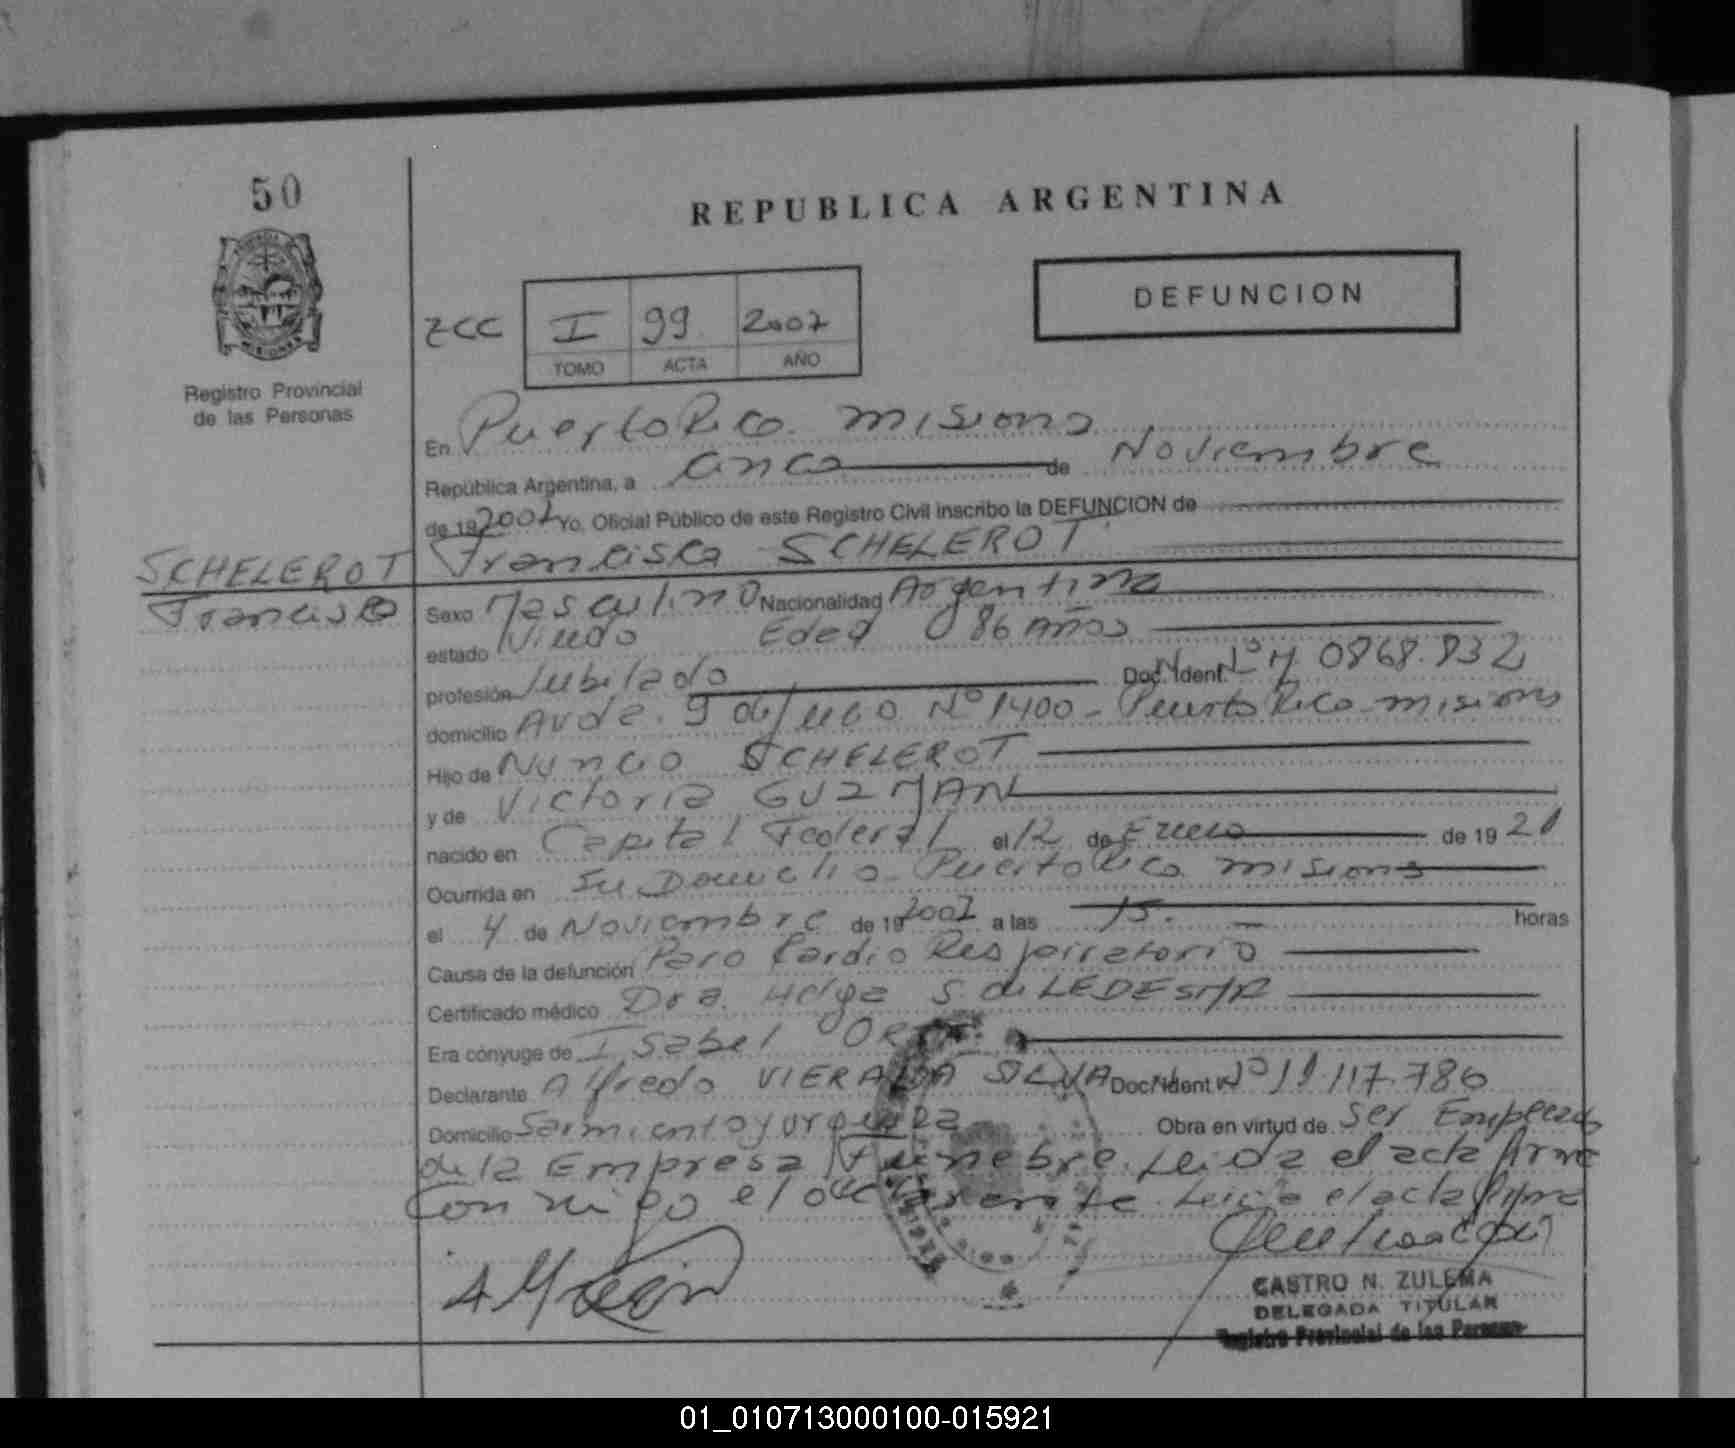 50
REPUBLICA ARGENTINA
DEFUNCION
ZCC I 99 2007
TOMO ACTA AÑO
Registro Provincial
de las Personas
En Puerto Rico. misiones
República Argentina, a cinco de Noviembre
de 19 2007 Yo, Oficial Público de este Registro Civil inscribo la DEFUNCION de
SCHELEROT Francisco SCHELEROT
Francisco Sexo Masculino Nacionalidad Argentina
estado Viudo Edad 86 Años
profesión Jubilado Doc. Ident. Nº M 0868.832
domicilio Avda. 9 de Julio Nº 1400 - Puerto Rico misiones
Hijo de Nuncio SCHELEROT
y de Victoria GUZMAN
nacido en Capital Federal el 12 de Enero de 19 21
Ocurrida en Su Domicilio - Puerto Rico misiones
el 4 de Noviembre de 19 2007 a las 15. horas
Causa de la defunción Paro Cardio Respiratorio
Certificado médico Dra. Helga S. de LEDESMA
Era cónyuge de Isabel
Declarante Alfredo VIERA DA SILVA Doc. Ident. Nº 11.117.786
Domicilio Sarmiento y Urquiza Obra en virtud de Ser Empleado
de la Empresa Funebre. Leida el acta firma
Conmigo el declarante Leida el acta firma
CASTRO N. ZULEMA
DELEGADA TITULAR
Registro Provincial de las Personas
01_010713000100-015921